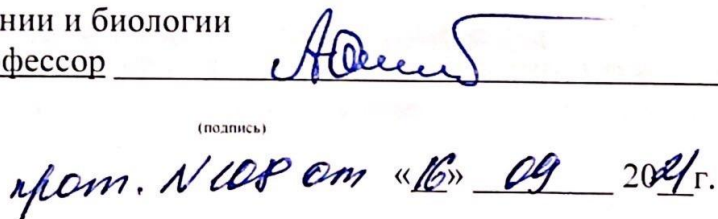 нии и биологии
фессор
(подпись)
прот. N 108 от «16» 09 2021 г.